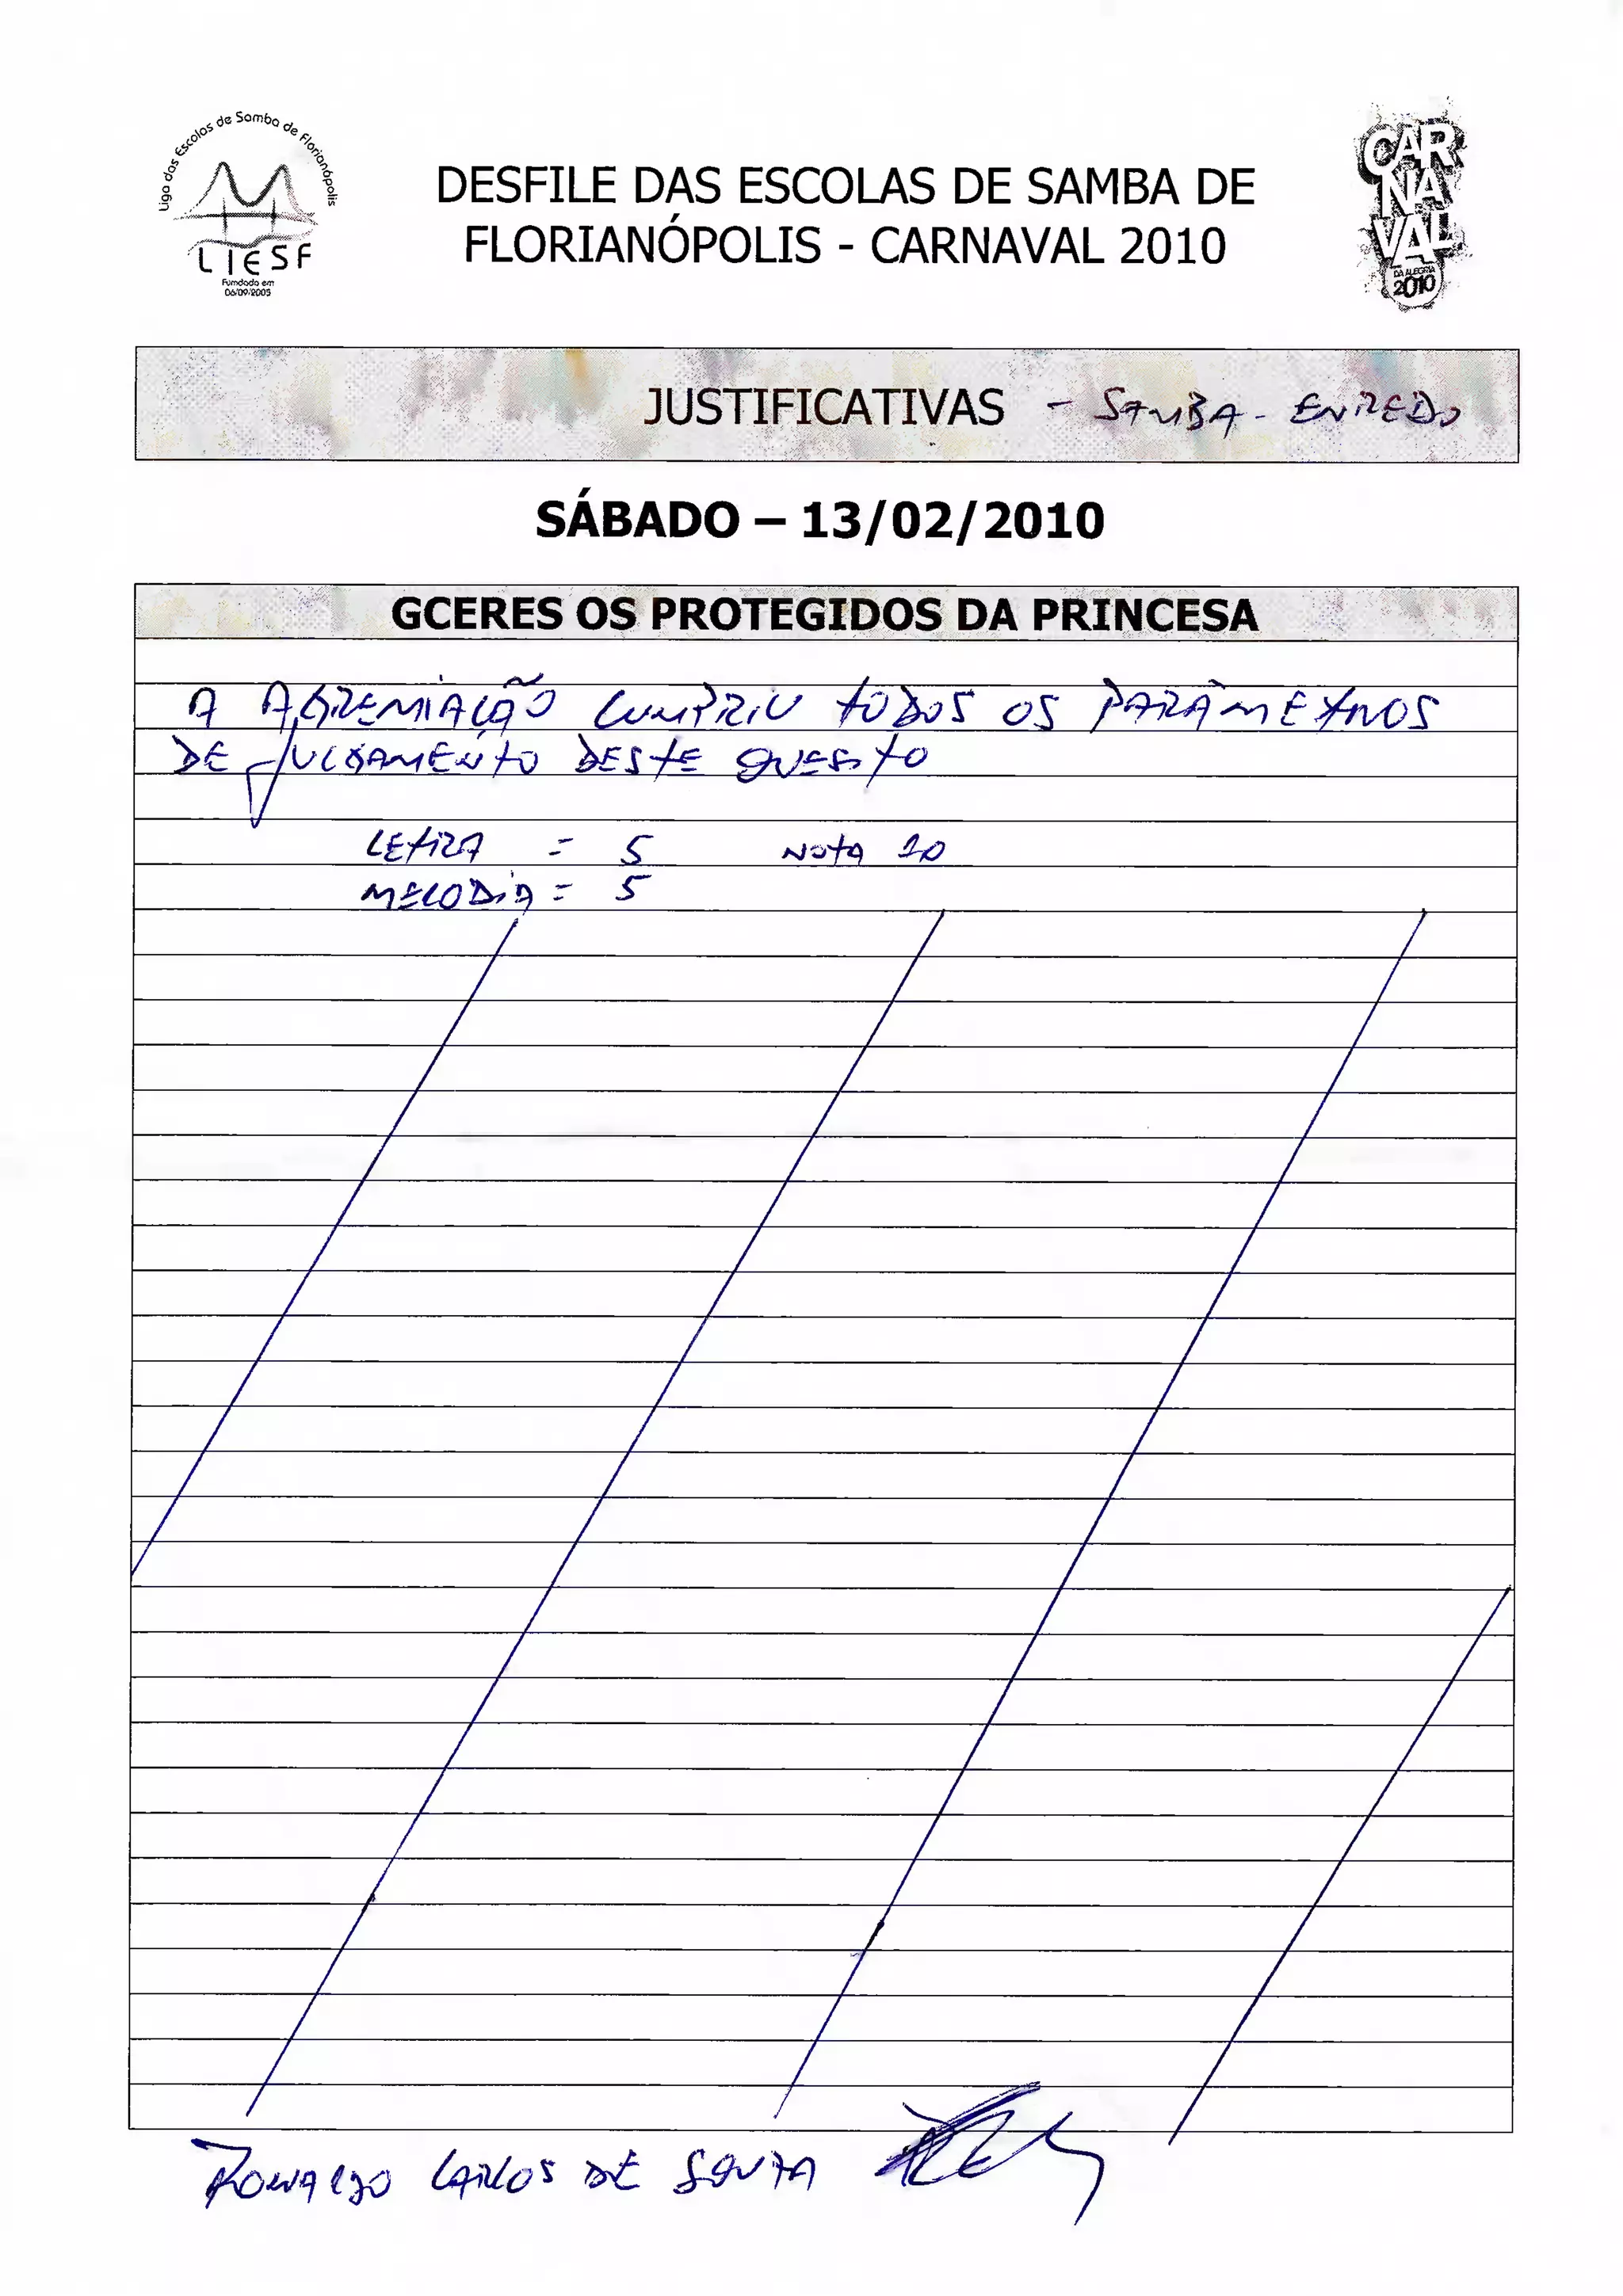 Liga das Escolas de Samba de Florianópolis
LIESF
Fumdada em
06/09/2005
DESFILE DAS ESCOLAS DE SAMBA DE
FLORIANÓPOLIS - CARNAVAL 2010
CAR
NA
VAL
DA ALEGRIA
2010
JUSTIFICATIVAS - SAMBA - ENREDO
SÁBADO – 13/02/2010
GCERES OS PROTEGIDOS DA PRINCESA
A AGREMIAÇÃO CUMPRIU TODOS OS PARÂMETROS
DE JULGAMENTO DESTE QUESITO
LETRA = 5 NOTA 10
MELODIA = 5
RONALDO CARLOS DE SOUZA